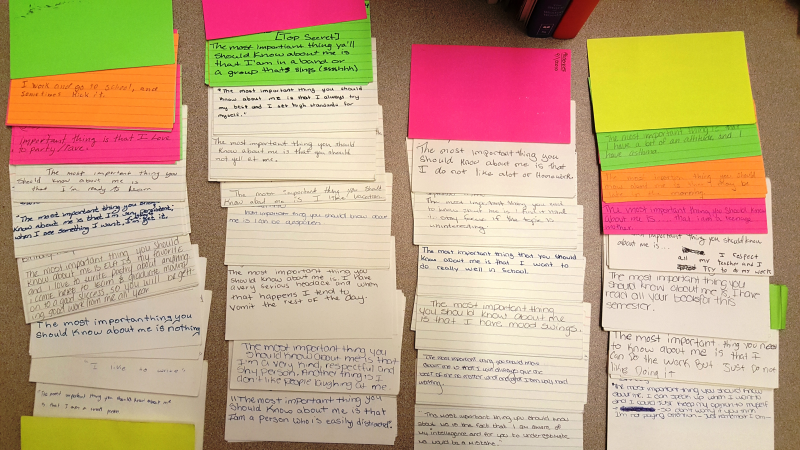 I work and go to school, and
sometimes kick it.
important thing is that I Love
to party/rave.
The most important thing you
should know about me is
that I'm ready to learn
The most important thing you
know about me is that I'm
when I see something I want, I'm get it.
The most important thing you should
know about me is ELD is my favorite
and i love to write poetry about anything
I come here to learn & graduate making
on to a good success so you will be
ing good work from me all year
The most important thing you
should know about me is nothing
"I like to
The most important thing you should know about me
is that I am a
[Top Secret]
The most important thing ya'll
should know about me is
that I'am in a band or
a group thats sings (ssshhh)
"The most important thing you should
know about me is that I always try
my best and I set high standards for
myself."
The most important thing you should
know about me is that you should
not yell at me.
The most important thing you should
know about me is I like
most important thing you should know about me
is I am can be
The most important thing you
should know about me is I have
very serious headace and when
that happens I tend to
vomit the rest of the day.
The most important thing you
should know about me is that
I'm a very kind, respectful and
shy person. Another thing is I
don't like people laughing at me.
"The most important thing you
should know about me is that
I am a person who is easily distracted".
The most important thing you
should know about me is that
I do not like alot or Homework.
The most important thing you want
to know about me is I find it hard
to stay focus if the topic is
uninteresting
The most important thing that you should
know about me is that I want to
do really well in school.
The most important thing
you should know about me
is that I have mood swings.
The most important thing you should
about me is that I will always give
best if
writing.
The most important thing you should know
about me is the fact that I am aware of
my intelligence and for you to underestimate
me would be a mistake."
The most important thing is that
I have a bit of an attitude and I
have asthma.
The most important thing you should
know about me is
The most important thing you should know
about me is... that I am a teenage
mother.
important thing you should know
about me is...
I respect
all my teacher and I
Try to do my work
The most important thing you
should know about me is I have
read all your books for this
semester.
The most important thing you need
to know about me is that I
can do the work But just Do not
like Doing it
"The most important thing you should know
about me: I can speak up when I want to
and I could also keep my opinion to myself
so don't worry if you think
I'm not paying attention - Just remember I am-